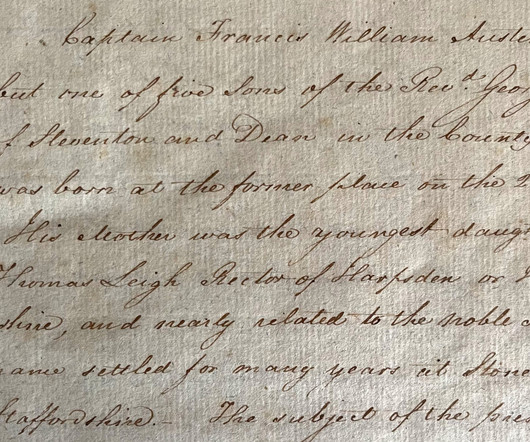 Captain Francis William Auste
but one of five Sons of the Revd. Geor
f Steventon and Dean in the County
was born at the former place on the 2
His Mother was the youngest daugh
Thomas Leigh Rector of Harpsden or
shire, and nearly related to the noble
name settled for many years at Stone
Staffordshire.— The subject of the pre